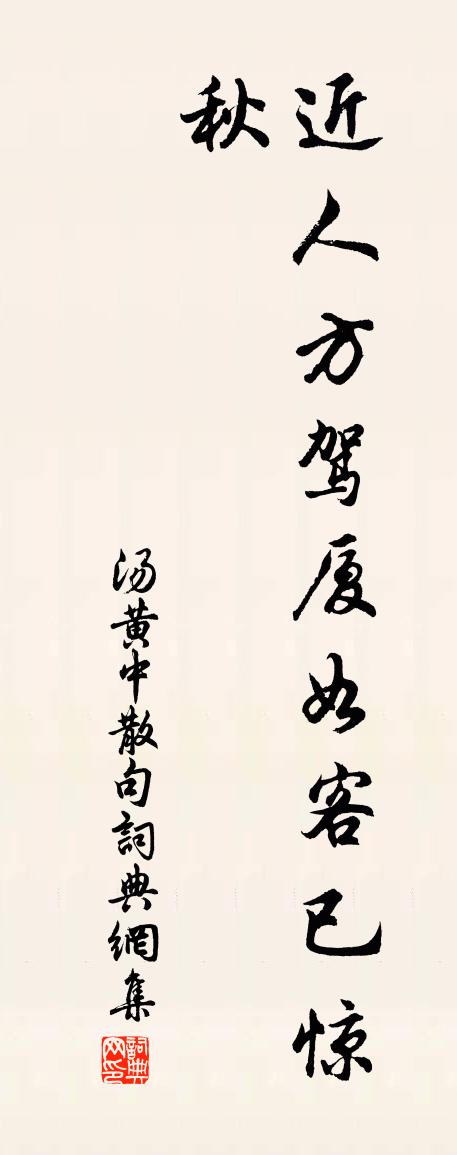 近人方驾厦如客已惊
秋
汤黄中散句詞典網集
詞典网印